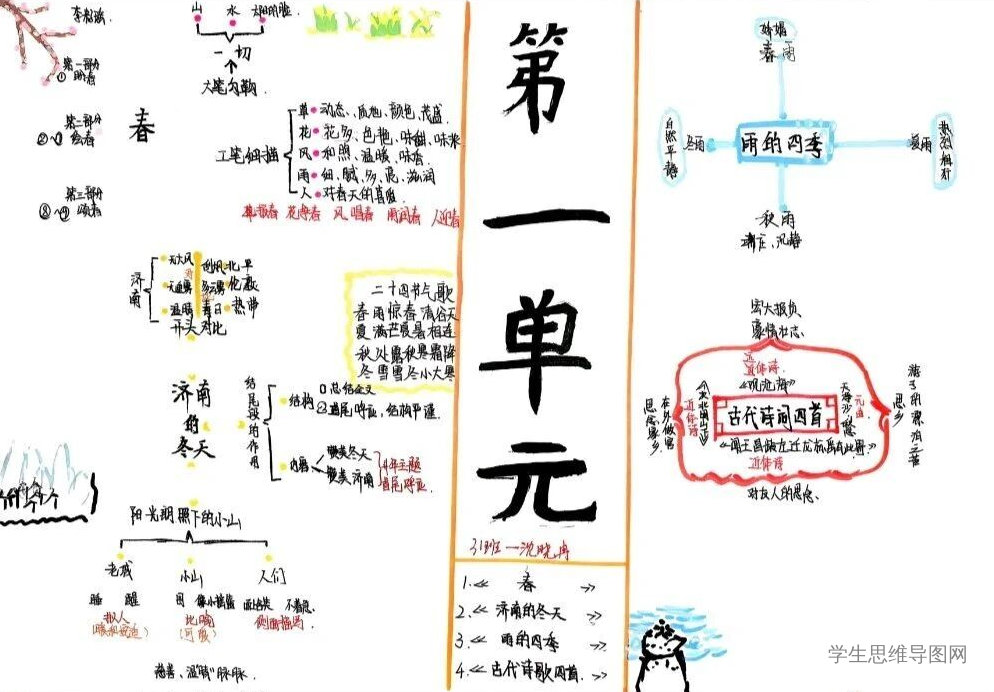 山 水 太阳的脸
一切
大笔勾勒
第一部分
① 盼春
第二部分
②~⑦ 绘春
第三部分
⑧~⑩ 颂春
春
工笔细描
草 动态、质地、颜色、茂盛
花 花多、色艳、味甜、味浓
风 和煦、温暖、味香
雨 细、腻、多、亮、滋润
人 对春天的喜
草报春 花争春 风唱春 雨润春 人迎春
济南
无大风 刮风 北平
温晴 毒日 热带
开头对比
济南
的
冬天
结尾段的作用
结构
① 总结全文
② 首尾呼应,结构严谨
内容
赞美冬天
赞美济南
首尾呼应
二十四节气歌
春雨惊春清谷天
夏满芒夏暑相连
秋处露秋寒霜降
冬雪雪冬小大寒
阳光朗照下的小山
老城 小山 人们
睡 醒
拟人
比喻
侧面描写
第
一
单
元
31班
1.《 春 》
2.《 济南的冬天 》
3.《 雨的四季 》
4.《古代诗歌四首.》
娇媚
春雨
自然平静
冬雨
雨的四季
夏雨
热烈粗犷
秋雨
端庄、沉静
宏大抱负
豪情壮志
近体诗
《观沧海》
古代诗词四首
《次北固山下》
近体诗
在外做官
思念家乡
天净沙·秋思
元曲
游子的漂泊之苦
思乡
《闻王昌龄左迁龙标遥有此寄》
近体诗
对友人的思念、
学生思维导图网